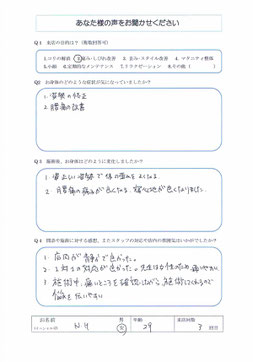 あなた様の声をお聞かせください
Q1 来店の目的は？（複数回答可）
1.コリの解消 2.痛み・しびれ改善 3.歪み・スタイル改善 4.マタニティ整体
5.小顔 6.定期的なメンテナンス 7.リラクゼーション 8.その他（ ）
Q2 お身体のどのような症状が気になっていましたか？
1. 姿勢の矯正
2. 腰痛の改善
Q3 施術後、お身体はどのように変化しましたか？
1. 正しい姿勢で体の歪みも
2. 腰痛の痛みが良くなり、寝心地が良くなりました。
Q4 問診や施術に対する感想、またスタッフの対応や店内の雰囲気はいかがでしたか？
1. 店内が静かで良かった。
2. 1対1の対応が良かった。先生は女性のため
3. 施術中、痛いところを確認しながら、施術してくれるので
伝えやすい
お名前 N.Y 男 女 年齢 29 来店回数 3 回目
(イニシャル可)